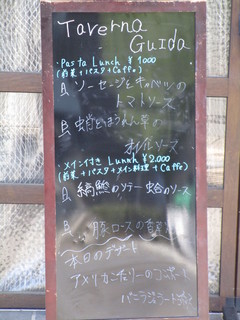 Taverna
Guida
・Pasta Lunch ¥1000
(前菜+パスタ+Caffe)
ソーセージとキャベツの
トマトソース
蛤とほうれん草の
オイルソース
・メイン付き Lunch ¥2.000
(前菜+パスタ+メイン料理+Caffe)
縞鯵のソテー 蛤のソース
豚ロースの香草
本日のデザート
アメリカンチェリーのコンポート
バニラジェラート